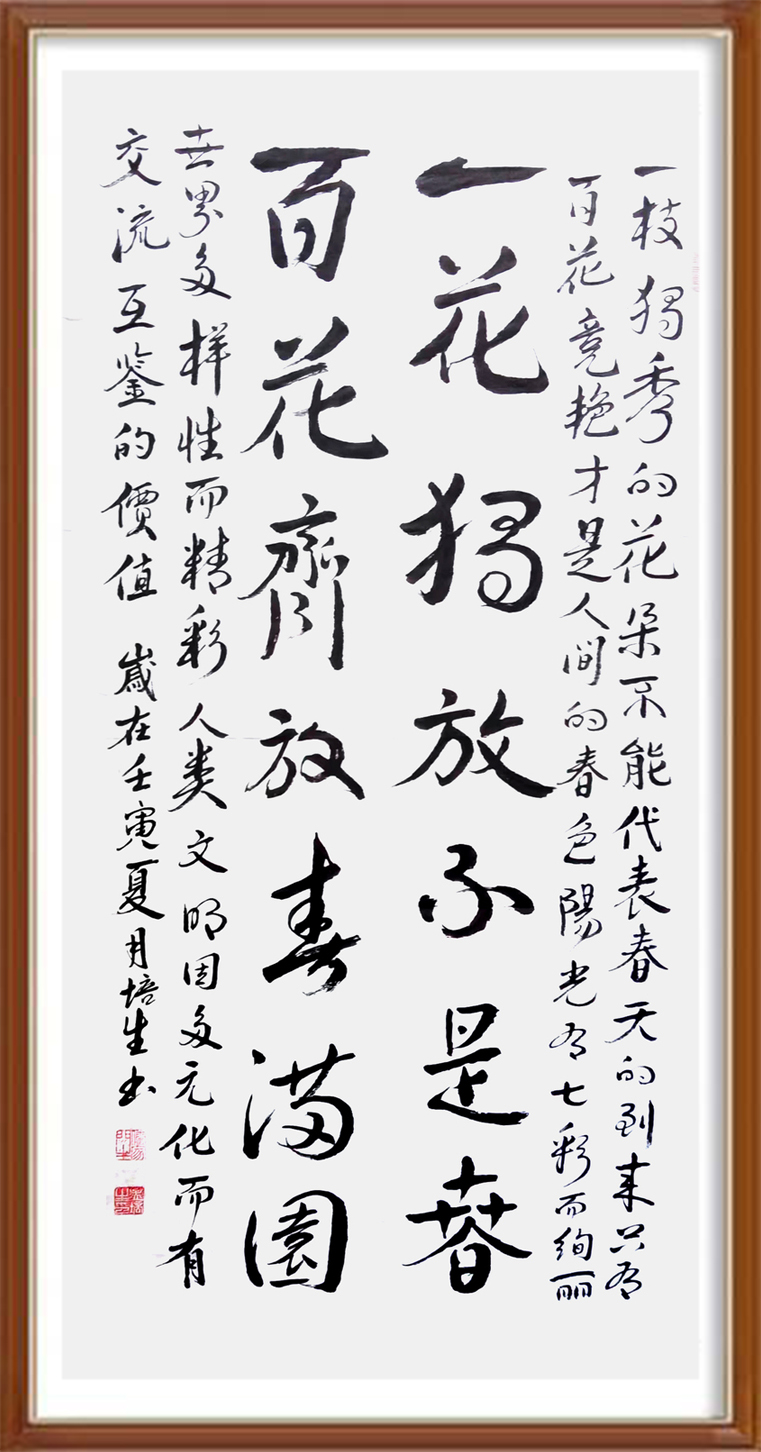 一枝獨秀的花朵不能代表春天的到来只有
百花竞艳才是人间的春色陽光有七彩而绚丽
一花獨放不是春
百花齊放春满園
世界多样性而精彩人类文明因多元化而有
交流互鉴的價值 歲在壬寅夏月培生书